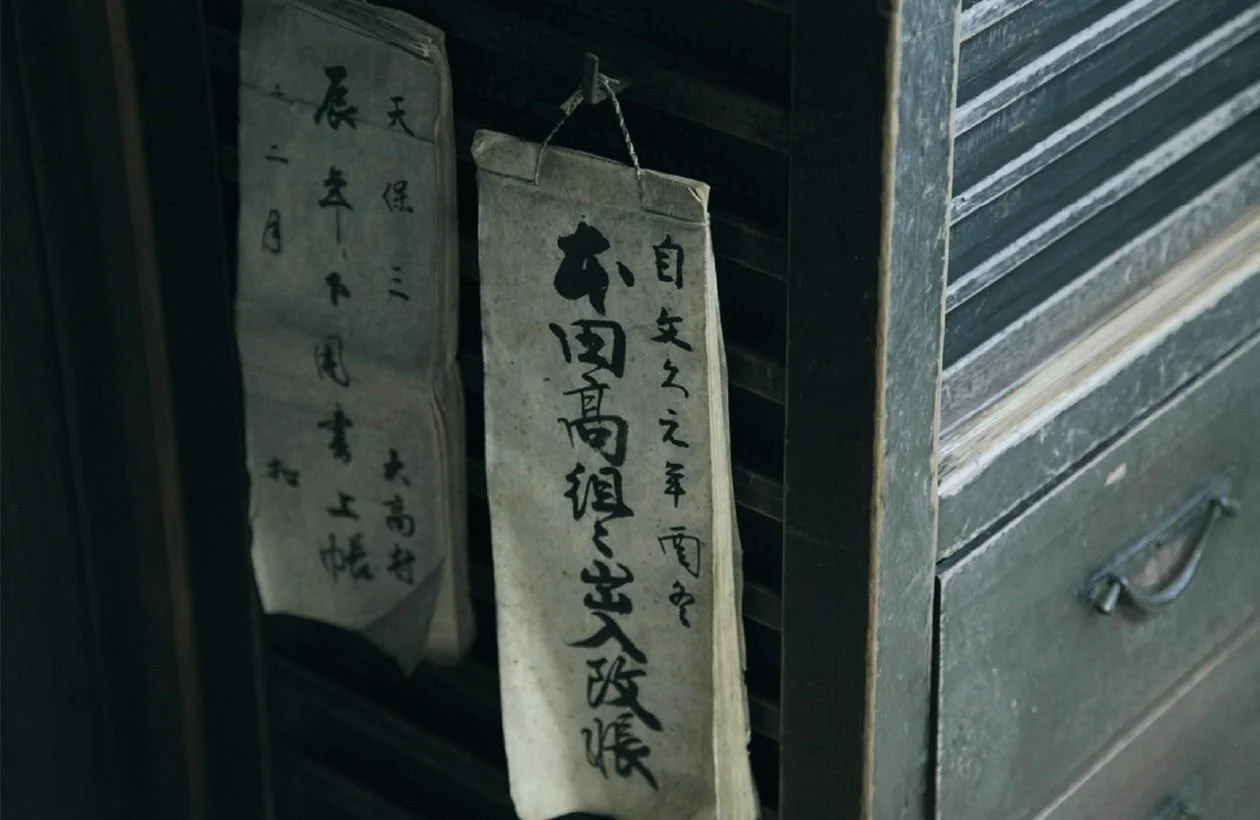 自文久元年酉冬
本田高組々出入改帳
天保三 大高村
辰年下用書上帳
二月